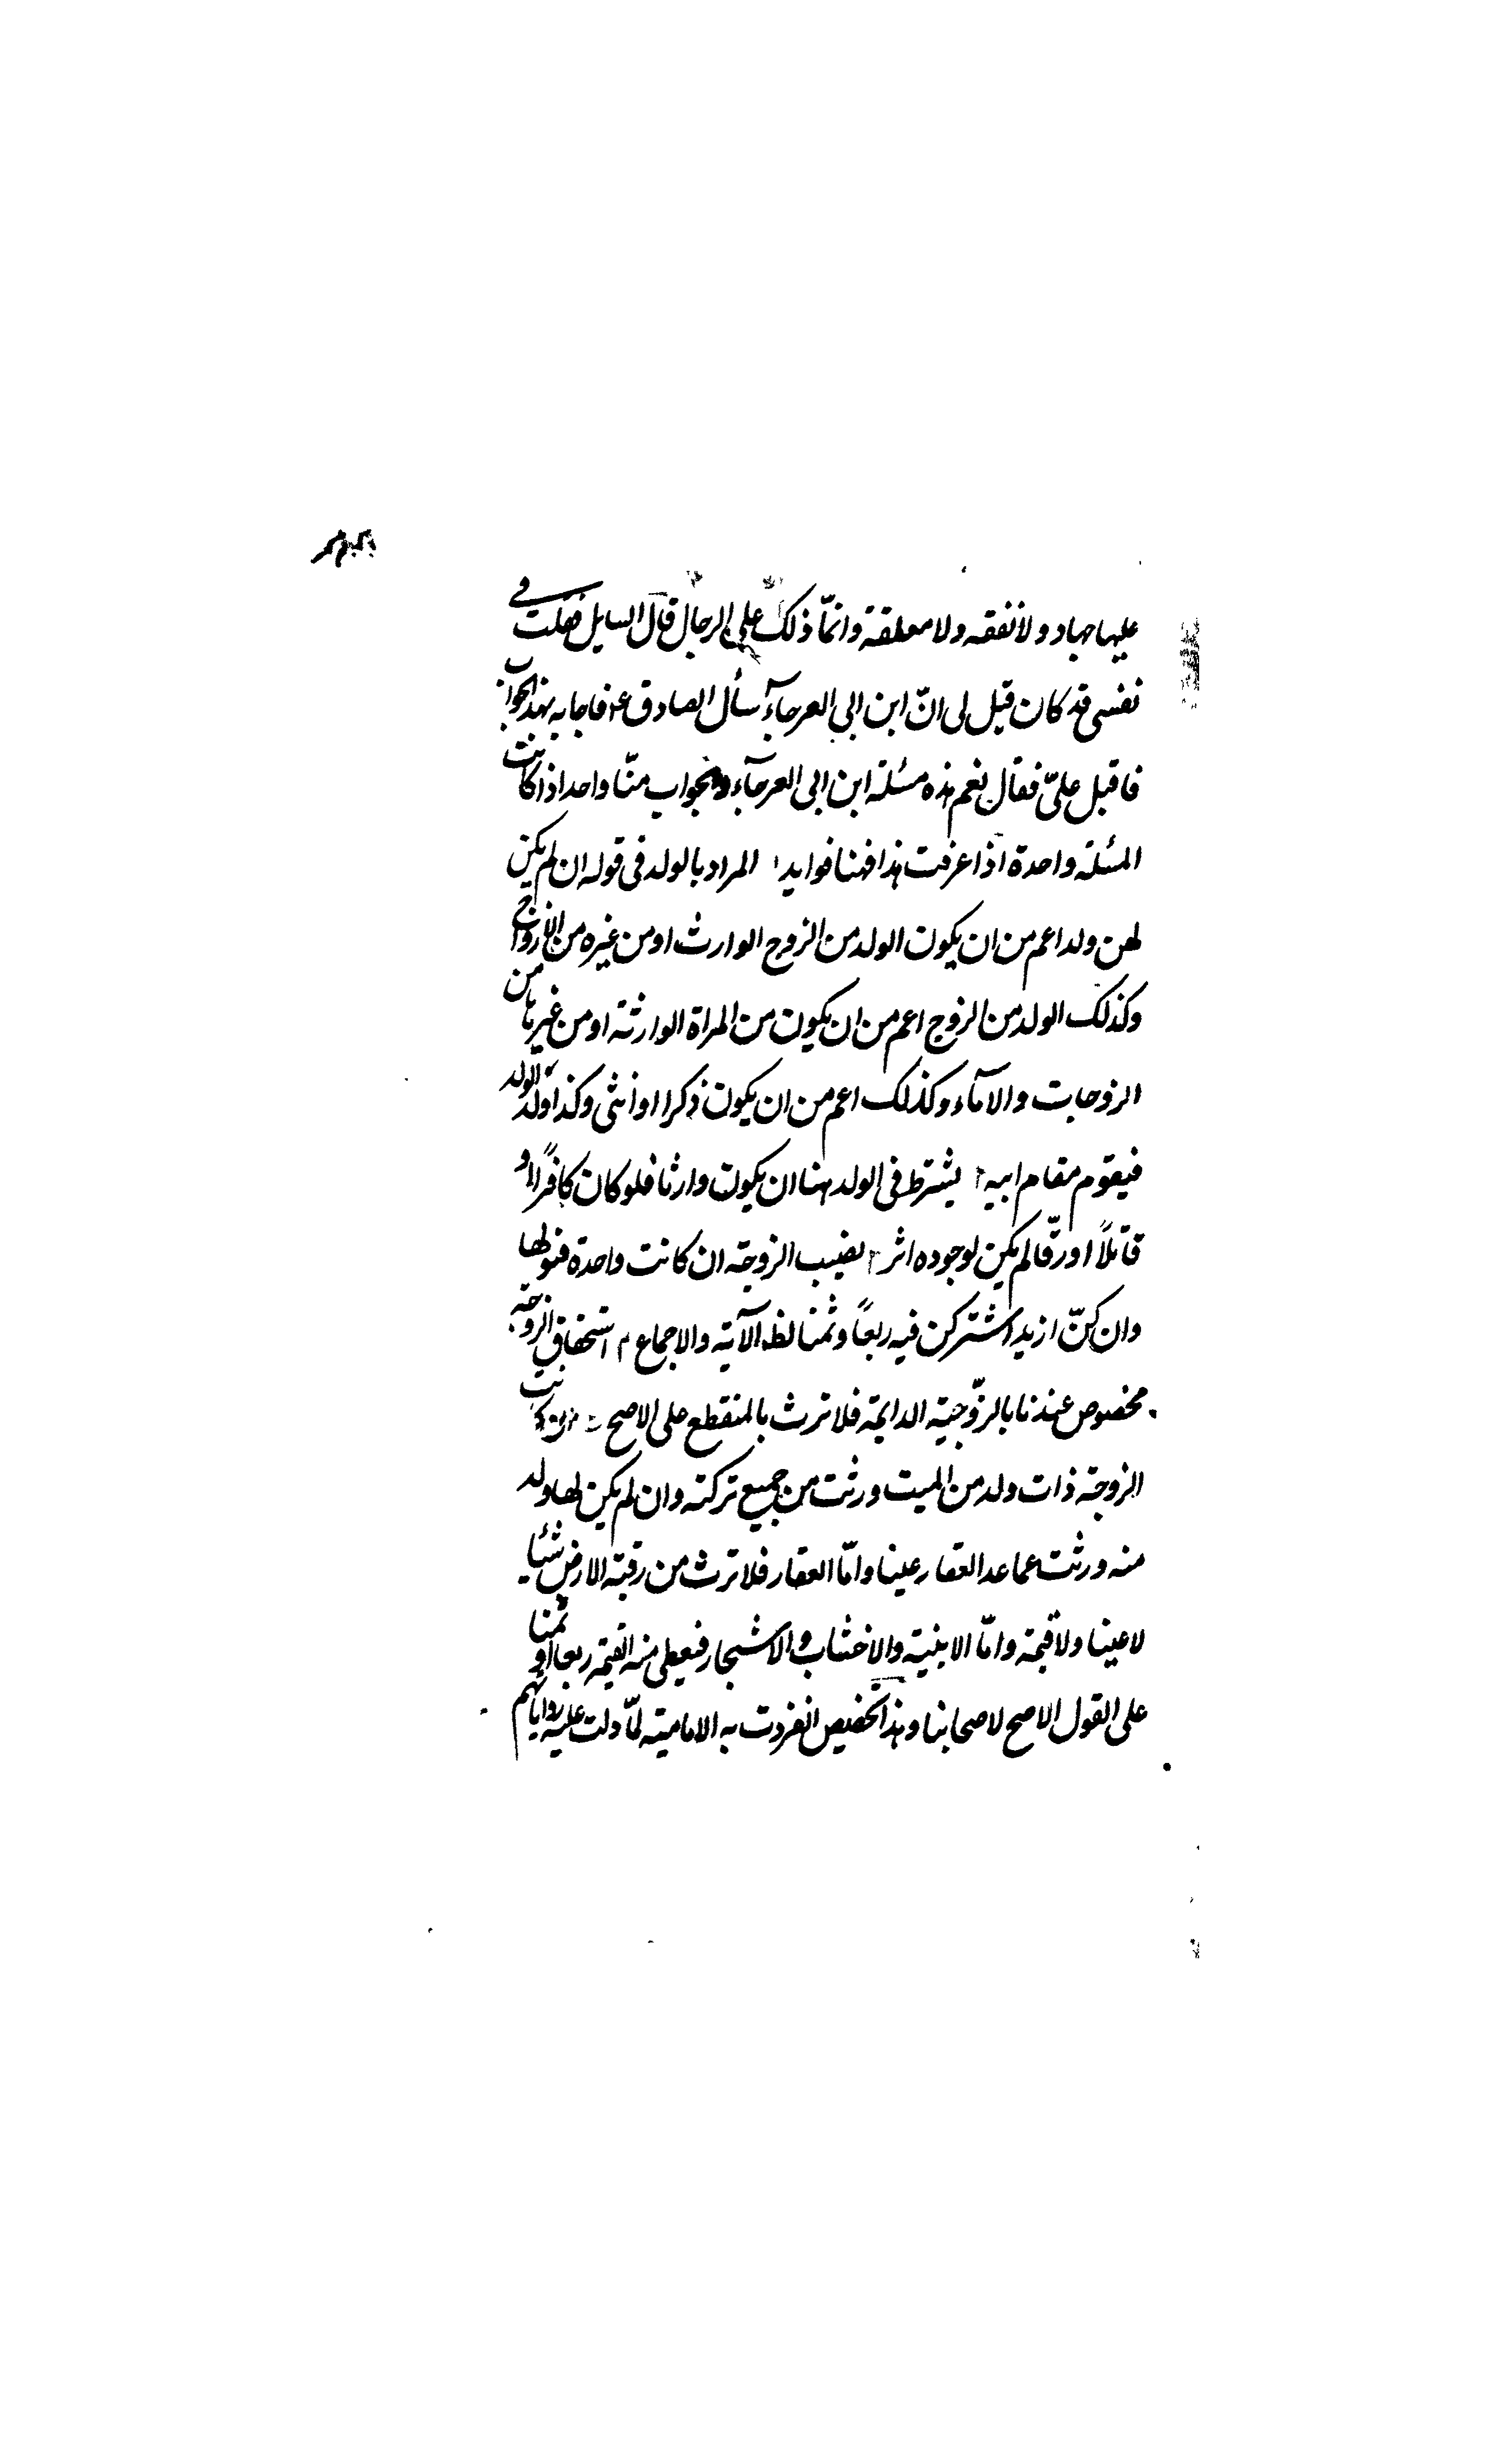 عليها جهاد ولا نفقه ولا معلقة وانمّا ذلك على الرجال قال السايل فقلت في
نفسى قد كان قيل لى انّ ابن ابى العرجآء سأل الصادق ع فاجابه بهذا الجواب
فاقبل علىّ فقال نعم هذه مسئلة ابن ابى العرجآء والجواب منّا واحد اذا كانت
المسئلة واحدة اذا عرفت هذا فهنا فوايد ا المراد بالولد فى قوله ان لم يكن
لهن ولد اعم من ان يكون الولد من الزوج الوارث او من غيره من الازواج
وكذلك الولد من الزوج اعم من ان يكون من المراة الوارثة او من غيرها من
الزوجات والامآء وكذلك اعم من ان يكون ذكرا او انثى وكذا ولد الولد
فيقوم مقام ابيه ٢ يشترط فى الولد هنا ان يكون وارثا فلو كان كافرًا او
قاتلًا او رقّا لم يكن لوجوده اثر ٣ نصيب الزوجة ان كانت واحدة فهو لها
وان كنّ ازيد اشتركن فيه ربعاً وثمنا لظ الآية والاجماع ٤ استحقاق الزوجة
مخصوص عندنا بالزّوجية الدايمة فلا ترث بالمنقطع على الاصح ان كانت
الزوجة ذات ولد من الميت ورثت من جميع تركته وان لم يكن لها ولد
منه ورثت عما عدا العقار عينا وامّا العقار فلا ترث من رقبة الارض شئا
لا عينا ولا قيمة وامّا الابنية والاخشاب والاشجار فيعطى من القيمة ربعا او ثمنا
على القول الاصح لاصحابنا وهذا التخصيص انفردت به الامامية لمّا دلت عليه رواياتهم